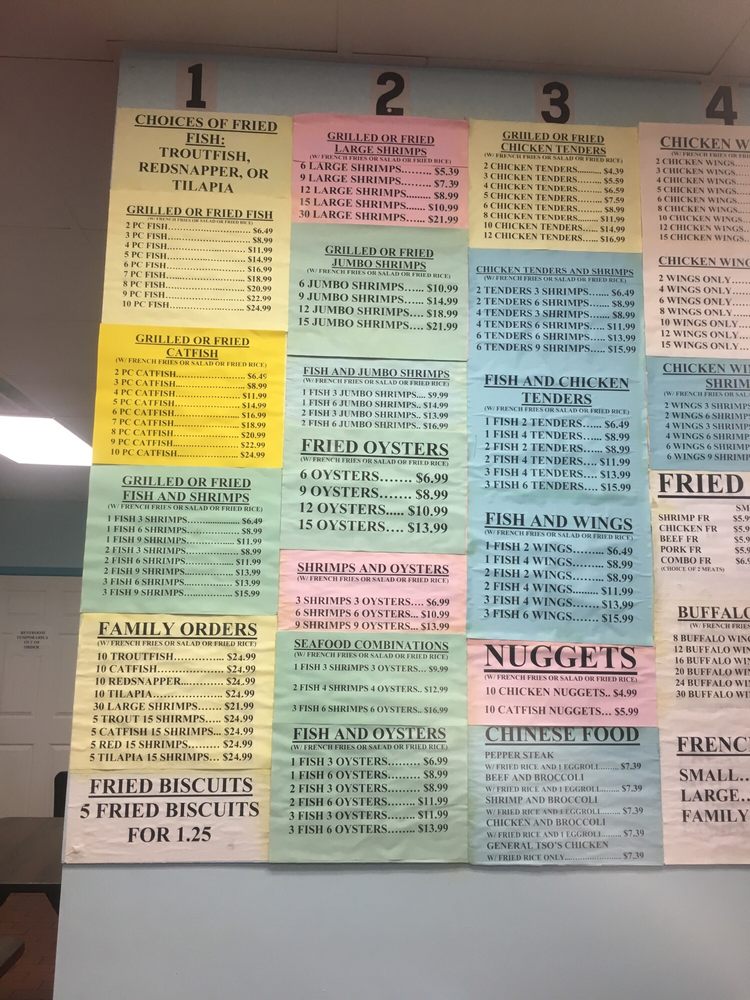 1
CHOICES OF FRIED
FISH:
TROUTFISH,
REDSNAPPER, OR
TILAPIA
GRILLED OR FRIED FISH
(W/ FRENCH FRIES OR SALAD OR FRIED RICE)
2 PC FISH.......... $6.49
3 PC FISH.......... $8.99
4 PC FISH.......... $11.99
5 PC FISH.......... $14.99
6 PC FISH.......... $16.99
7 PC FISH.......... $18.99
8 PC FISH.......... $20.99
9 PC FISH.......... $22.99
10 PC FISH.......... $24.99
GRILLED OR FRIED
CATFISH
(W/ FRENCH FRIES OR SALAD OR FRIED RICE)
2 PC CATFISH.......... $6.49
3 PC CATFISH.......... $8.99
4 PC CATFISH.......... $11.99
5 PC CATFISH.......... $14.99
6 PC CATFISH.......... $16.99
7 PC CATFISH.......... $18.99
8 PC CATFISH.......... $20.99
9 PC CATFISH.......... $22.99
10 PC CATFISH.......... $24.99
GRILLED OR FRIED
FISH AND SHRIMPS
(W/ FRENCH FRIES OR SALAD OR FRIED RICE)
1 FISH 3 SHRIMPS.......... $6.49
1 FISH 6 SHRIMPS.......... $8.99
1 FISH 9 SHRIMPS.......... $11.99
2 FISH 3 SHRIMPS.......... $8.99
2 FISH 6 SHRIMPS.......... $11.99
2 FISH 9 SHRIMPS.......... $13.99
3 FISH 6 SHRIMPS.......... $13.99
3 FISH 9 SHRIMPS.......... $15.99
FAMILY ORDERS
(W/ FRENCH FRIES OR SALAD OR FRIED RICE)
10 TROUTFISH.......... $24.99
10 CATFISH.......... $24.99
10 REDSNAPPER.......... $24.99
10 TILAPIA.......... $24.99
30 LARGE SHRIMPS....... $21.99
5 TROUT 15 SHIRMPS.... $24.99
5 CATFISH 15 SHRIMPS... $24.99
5 RED 15 SHRIMPS........ $24.99
5 TILAPIA 15 SHRIMPS... $24.99
FRIED BISCUITS
5 FRIED BISCUITS
FOR 1.25
2
GRILLED OR FRIED
LARGE SHRIMPS
(W/ FRENCH FRIES OR SALAD OR FRIED RICE)
6 LARGE SHRIMPS........ $5.39
9 LARGE SHRIMPS........ $7.39
12 LARGE SHRIMPS....... $8.99
15 LARGE SHRIMPS....... $10.99
30 LARGE SHRIMPS....... $21.99
GRILLED OR FRIED
JUMBO SHRIMPS
(W/ FRENCH FRIES OR SALAD OR FRIED RICE)
6 JUMBO SHRIMPS...... $10.99
9 JUMBO SHRIMPS...... $14.99
12 JUMBO SHRIMPS.... $18.99
15 JUMBO SHRIMPS.... $21.99
FISH AND JUMBO SHRIMPS
(W/ FRENCH FRIES OR SALAD OR FRIED RICE)
1 FISH 3 JUMBO SHRIMPS.... $9.99
1 FISH 6 JUMBO SHRIMPS.. $14.99
2 FISH 3 JUMBO SHRIMPS.. $13.99
2 FISH 6 JUMBO SHRIMPS.. $16.99
FRIED OYSTERS
(W/ FRENCH FRIES OR SALAD OR FRIED RICE)
6 OYSTERS....... $6.99
9 OYSTERS....... $8.99
12 OYSTERS..... $10.99
15 OYSTERS.... $13.99
SHRIMPS AND OYSTERS
(W/ FRENCH FRIES OR SALAD OR FRIED RICE)
3 SHRIMPS 3 OYSTERS.... $6.99
6 SHRIMPS 6 OYSTERS... $10.99
9 SHRIMPS 9 OYSTERS... $13.99
SEAFOOD COMBINATIONS
(W/ FRENCH FRIES OR SALAD OR FRIED RICE)
1 FISH 3 SHRIMPS 3 OYSTERS... $9.99
2 FISH 4 SHRIMPS 4 OYSTERS.. $12.99
3 FISH 6 SHRIMPS 6 OYSTERS.. $16.99
FISH AND OYSTERS
(W/ FRENCH FRIES OR SALAD OR FRIED RICE)
1 FISH 3 OYSTERS........ $6.99
1 FISH 6 OYSTERS........ $8.99
2 FISH 3 OYSTERS........ $8.99
2 FISH 6 OYSTERS....... $11.99
3 FISH 3 OYSTERS....... $11.99
3 FISH 6 OYSTERS....... $13.99
3
GRIILED OR FRIED
CHICKEN TENDERS
(W/ FRENCH FRIES OR SALAD OR FRIED RICE)
2 CHICKEN TENDERS.......... $4.39
3 CHICKEN TENDERS.......... $5.59
4 CHICKEN TENDERS.......... $6.59
5 CHICKEN TENDERS.......... $7.59
6 CHICKEN TENDERS.......... $8.99
8 CHICKEN TENDERS......... $11.99
10 CHICKEN TENDERS....... $14.99
12 CHICKEN TENDERS....... $16.99
CHICKEN TENDERS AND SHRIMPS
(W/ FRENCH FRIES OR SALAD OR FRIED RICE)
2 TENDERS 3 SHRIMPS...... $6.49
2 TENDERS 6 SHRIMPS...... $8.99
4 TENDERS 3 SHRIMPS...... $8.99
4 TENDERS 6 SHRIMPS..... $11.99
6 TENDERS 6 SHRIMPS..... $13.99
6 TENDERS 9 SHRIMPS..... $15.99
FISH AND CHICKEN
TENDERS
(W/ FRENCH FRIES OR SALAD OR FRIED RICE)
1 FISH 2 TENDERS...... $6.49
1 FISH 4 TENDERS...... $8.99
2 FISH 2 TENDERS...... $8.99
2 FISH 4 TENDERS.... $11.99
3 FISH 4 TENDERS.... $13.99
3 FISH 6 TENDERS.... $15.99
FISH AND WINGS
(W/ FRENCH FRIES OR SALAD OR FRIED RICE)
1 FISH 2 WINGS........ $6.49
1 FISH 4 WINGS........ $8.99
2 FISH 2 WINGS........ $8.99
2 FISH 4 WINGS.......... $11.99
3 FISH 4 WINGS....... $13.99
3 FISH 6 WINGS....... $15.99
NUGGETS
(W/ FRENCH FRIES OR SALAD OR FRIED RICE)
10 CHICKEN NUGGETS.. $4.99
10 CATFISH NUGGETS... $5.99
CHINESE FOOD
PEPPER STEAK
W/ FRIED RICE AND 1 EGGROLL....... $7.39
BEEF AND BROCCOLI
W/ FRIED RICE AND 1 EGGROLL....... $7.39
SHRIMP AND BROCCOLI
W/ FRIED RICE AND 1 EGGROLL....... $7.39
CHICKEN AND BROCCOLI
W/ FRIED RICE AND 1 EGGROLL....... $7.39
GENERAL TSO'S CHICKEN
W/ FRIED RICE ONLY.................. $7.39
4
CHICKEN W
(W/ FRENCH FRIES OR
2 CHICKEN WINGS...
3 CHICKEN WINGS...
4 CHICKEN WINGS...
5 CHICKEN WINGS...
6 CHICKEN WINGS...
8 CHICKEN WINGS...
10 CHICKEN WINGS..
12 CHICKEN WINGS..
15 CHICKEN WINGS..
CHICKEN WING
2 WINGS ONLY......
4 WINGS ONLY......
6 WINGS ONLY......
8 WINGS ONLY......
10 WINGS ONLY....
12 WINGS ONLY....
15 WINGS ONLY....
CHICKEN WI
SHRIM
2 WINGS 3 SHRIMPS
2 WINGS 6 SHRIMPS
4 WINGS 3 SHRIMPS
4 WINGS 6 SHRIMPS
6 WINGS 6 SHRIMPS
6 WINGS 9 SHRIMPS
FRIED
SM
SHRIMP FR $5.9
CHICKEN FR $5.9
BEEF FR $5.9
PORK FR $5.9
COMBO FR $6.
(CHOICE OF 2 MEATS)
BUFFALO
(W/ FRENCH FRIES
8 BUFFALO WIN
12 BUFFALO WI
16 BUFFALO WI
20 BUFFALO WI
24 BUFFALO WI
30 BUFFALO WI
FRENC
SMALL...
LARGE...
FAMILY
RESTROOM
TEMPORARILY
OUT OF
ORDER